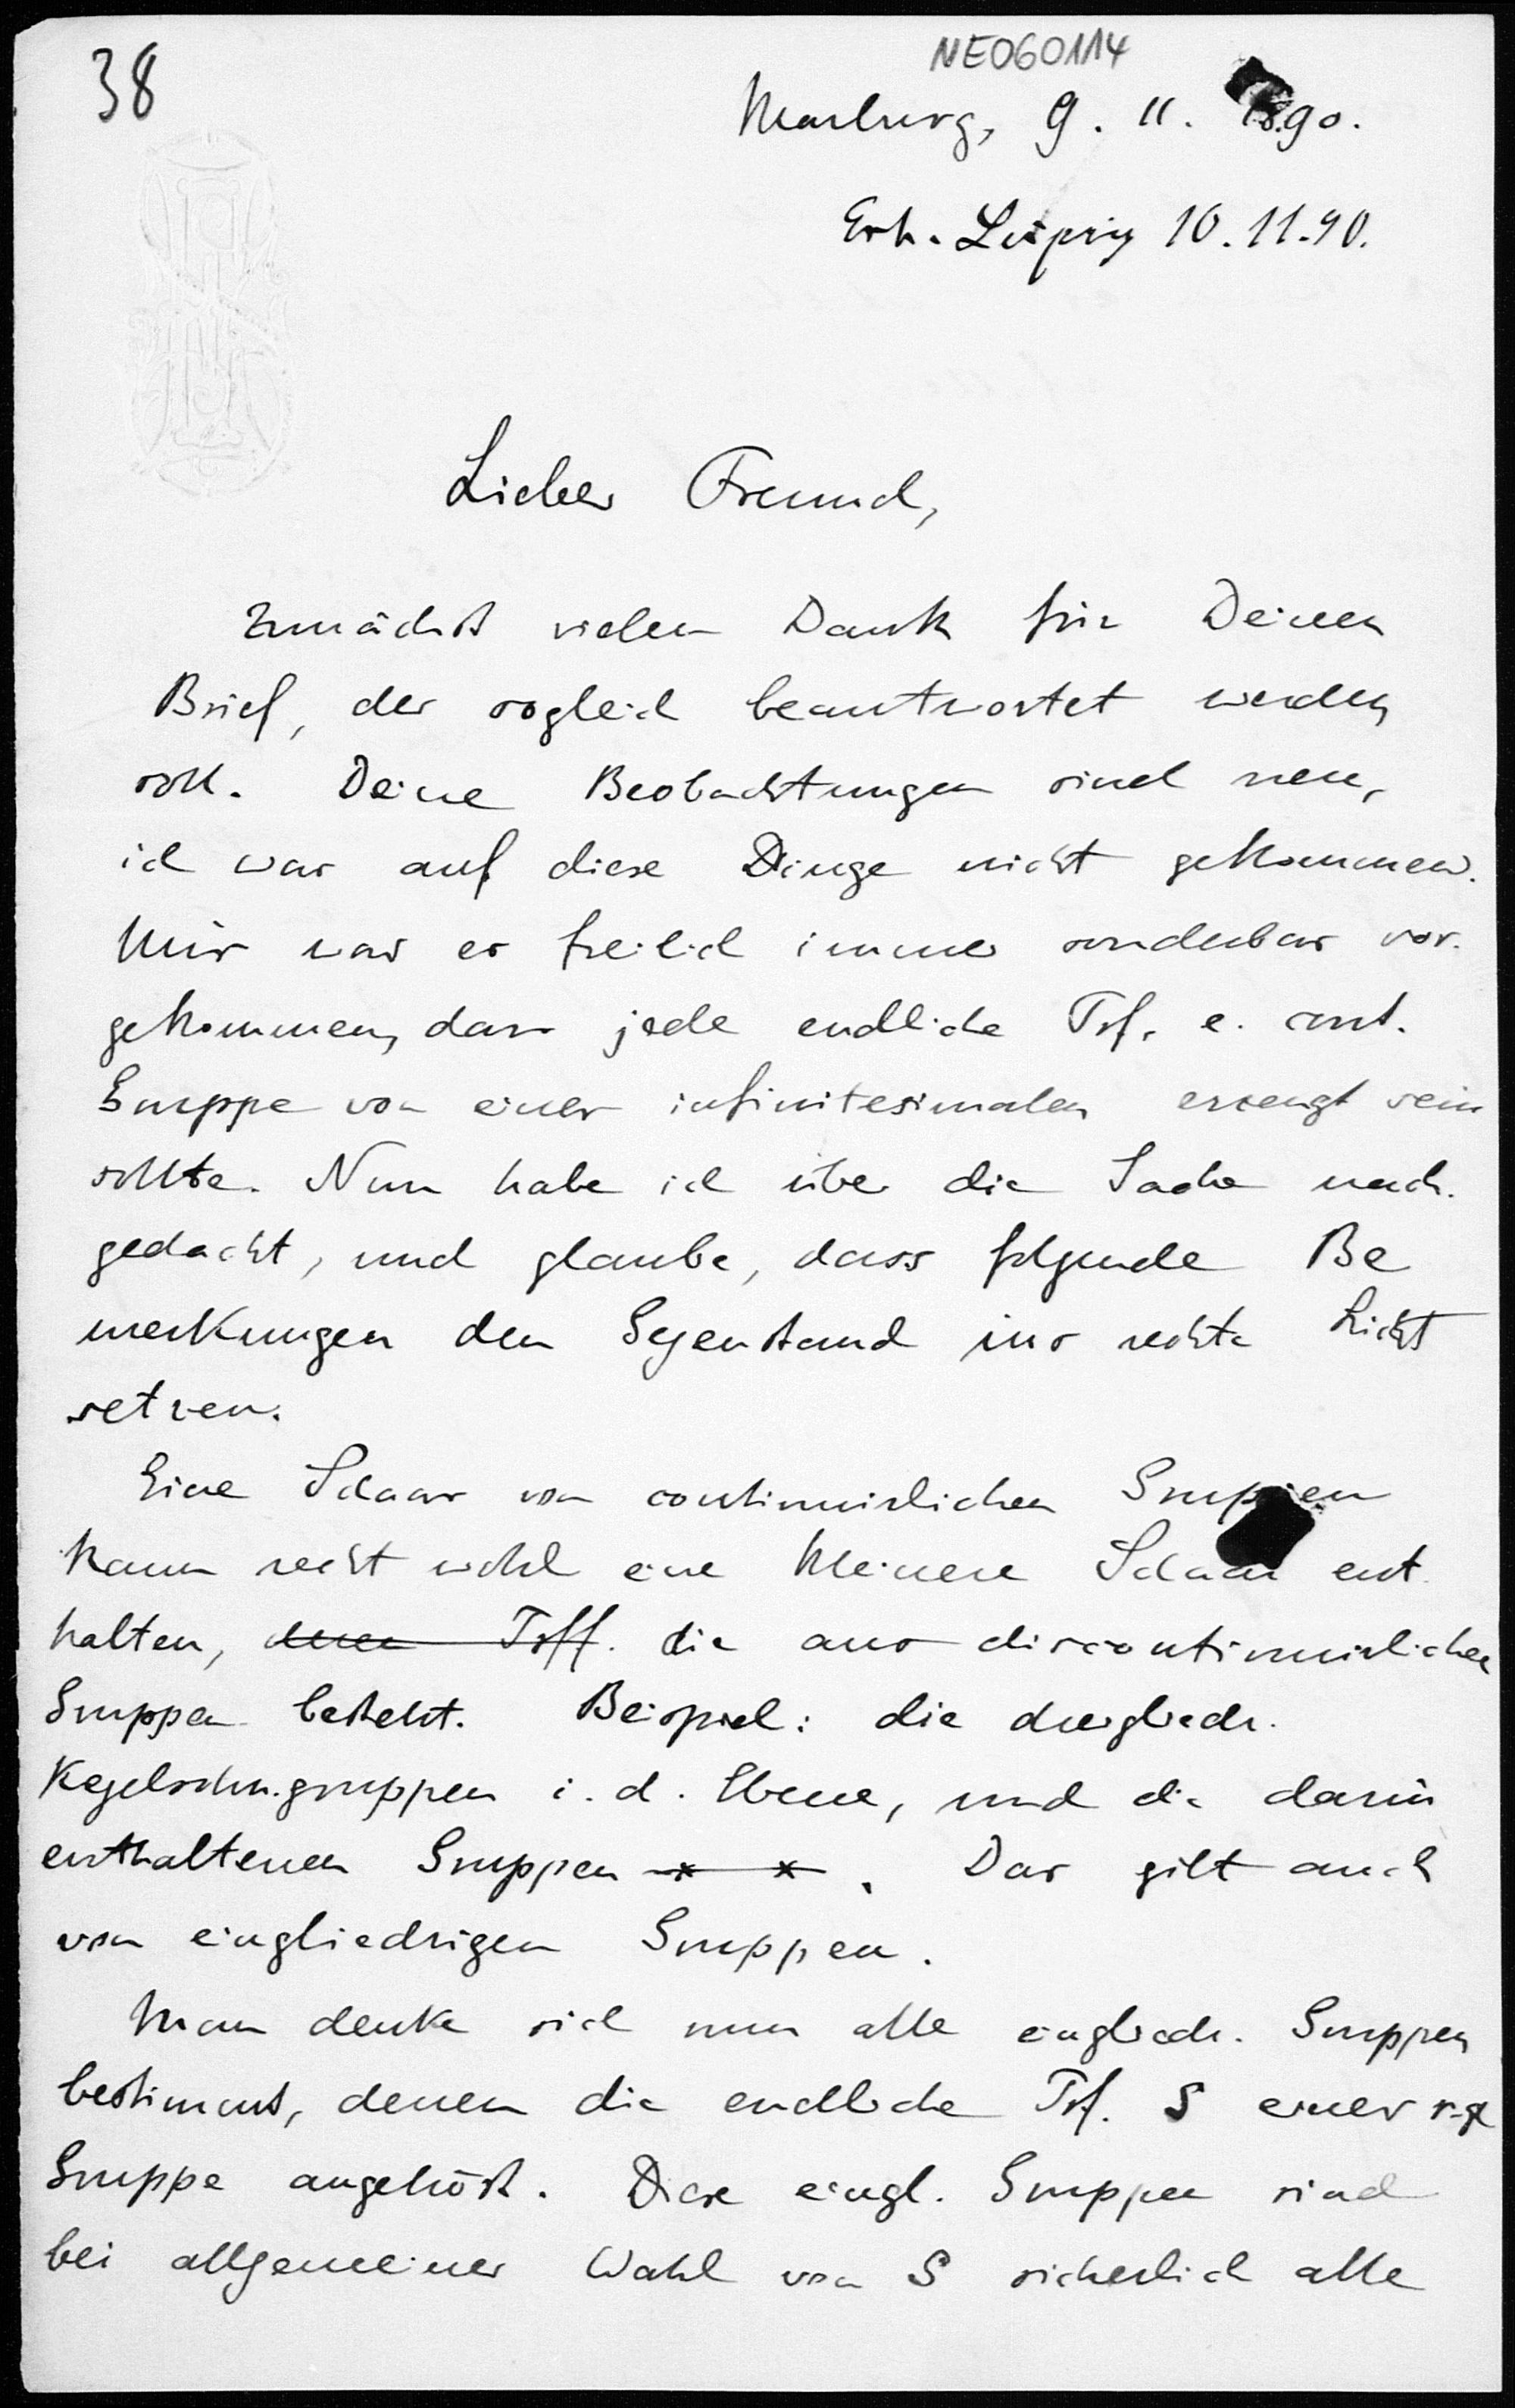 38
NE060114
Marburg, 9. 11. 1890.
Erh. Leipzig 10.11.90.
Lieber Freund,
Zunächst vielen Dank für Deinen
Brief, der sogleich beantwortet werden
soll. Deine Beobachtungen sind neu,
ich war auf diese Dinge nicht gekommen.
Mir war es freilich immer sonderbar vor-
gekommen, dass jede endliche Trf. e. cont.
Gruppe von einer infinitesimalen erzeugt sein
sollte. Nun habe ich über die Sache nach-
gedacht, und glaube, dass folgende Be
merkungen den Gegenstand ins rechte Licht
setzen.
Eine Schaar von continuirlichen Gruppen
kann recht wohl eine kleinere Schaar ent-
halten, deren Trff. die aus discontinuirlichen
Gruppen besteht. Beispiel: die dreigliedr.
Kegelschn.gruppen i. d. Ebene, und die darin
enthaltenen Gruppen × × . Das gilt auch
von eingliedrigen Gruppen.
Man denke sich nun alle eingliedr. Gruppen
bestimmt, denen die endliche Trf. S einer r-gl
Gruppe angehört. Diese eingl. Gruppen sind
bei allgemeiner Wahl von S sicherlich alle